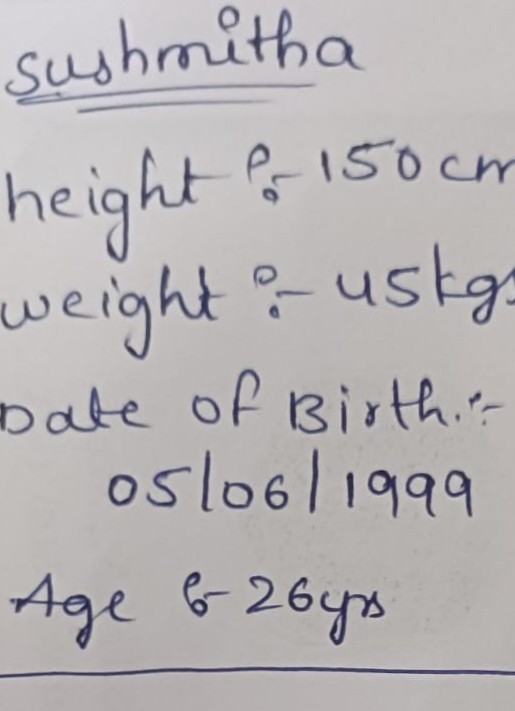 sushmitha
height :- 150cm
weight :- 45kgs
Date of Birth :-
05/06/1999
Age :- 26yrs